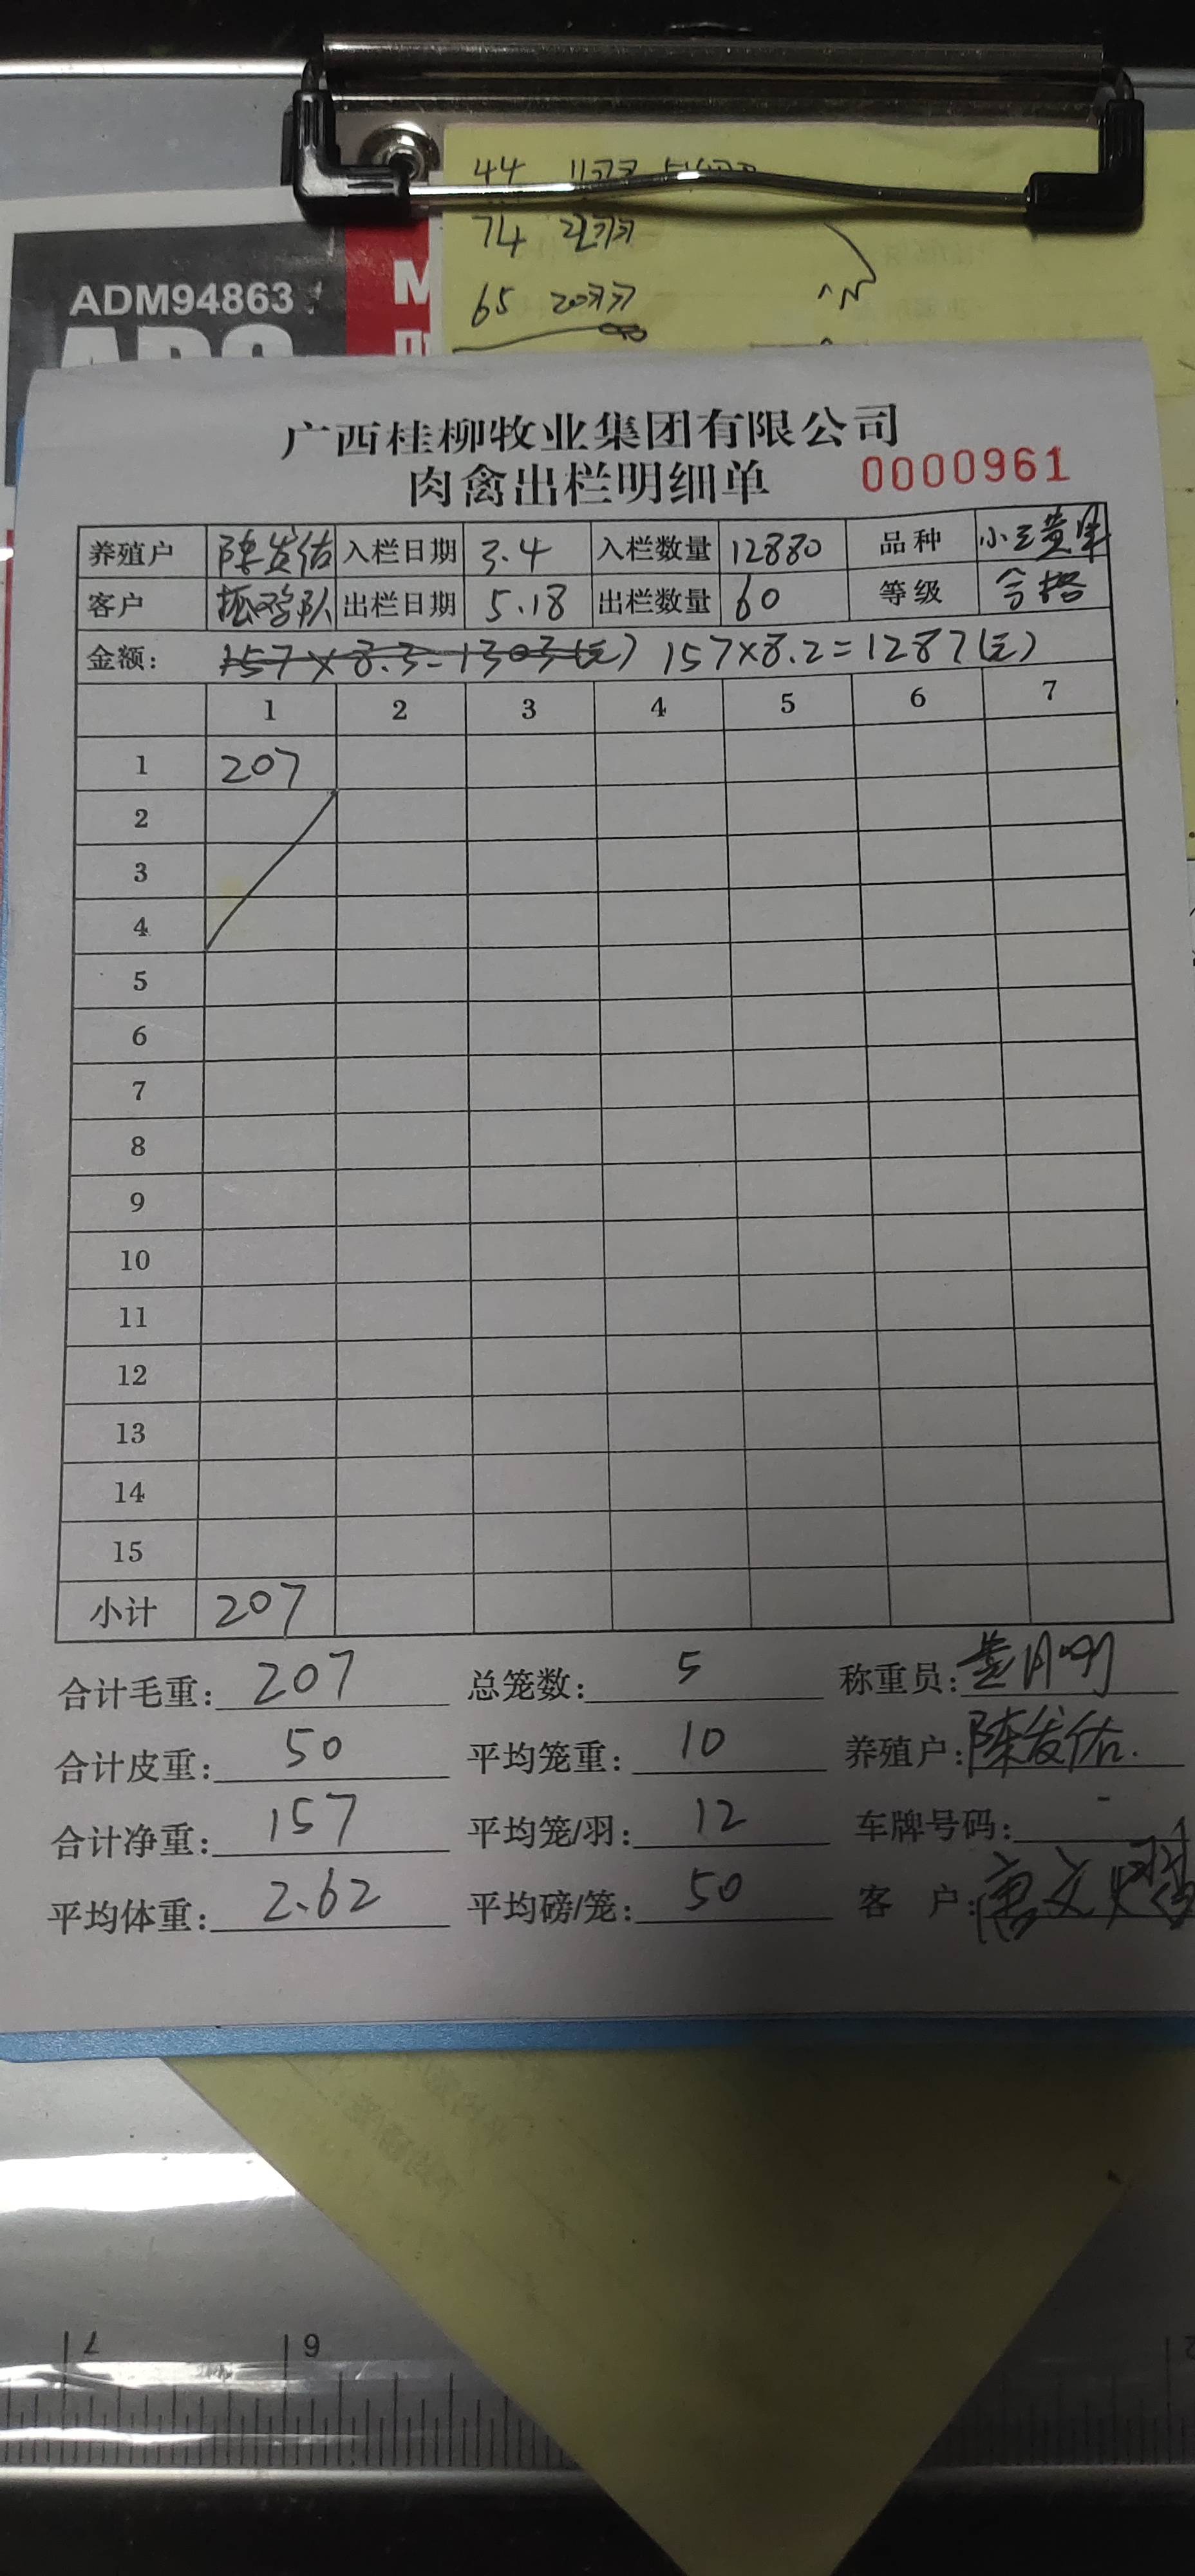 44
74
65
ADM94863
广西桂柳牧业集团有限公司
肉禽出栏明细单 0000961
养殖户 陈发佑 入栏日期 3.4 入栏数量 12880 品种 小三黄
客户 抓鸡队 出栏日期 5.18 出栏数量 60 等级 合格
金额: 157×8.3=1303(元) 157×8.2=1287(元)
1 2 3 4 5 6 7
1 207
2
3
4
5
6
7
8
9
10
11
12
13
14
15
小计 207
合计毛重: 207 总笼数: 5 称重员:
合计皮重: 50 平均笼重: 10 养殖户: 陈发佑.
合计净重: 157 平均笼/羽: 12 车牌号码: -
平均体重: 2.62 平均磅/笼: 50 客 户: 唐文
7 6